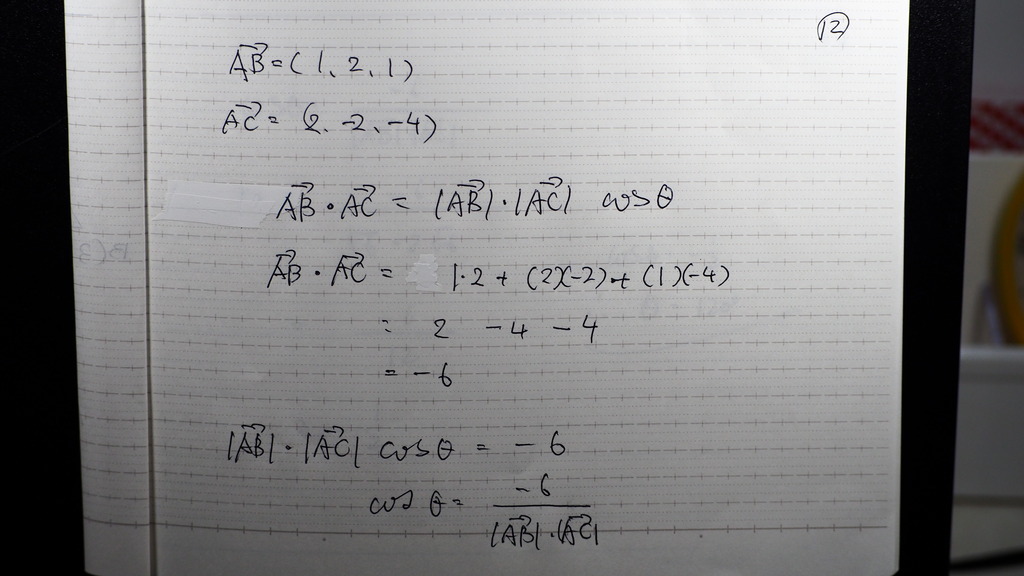 ⑫
AB→ = (1, 2, 1)
AC→ = (2, -2, -4)
AB→ · AC→ = |AB→| · |AC→| cos θ
AB→ · AC→ = 1·2 + (2)(-2) + (1)(-4)
= 2 - 4 - 4
= -6
|AB→| · |AC→| cos θ = -6
cos θ = -6 / |AB→| · |AC→|